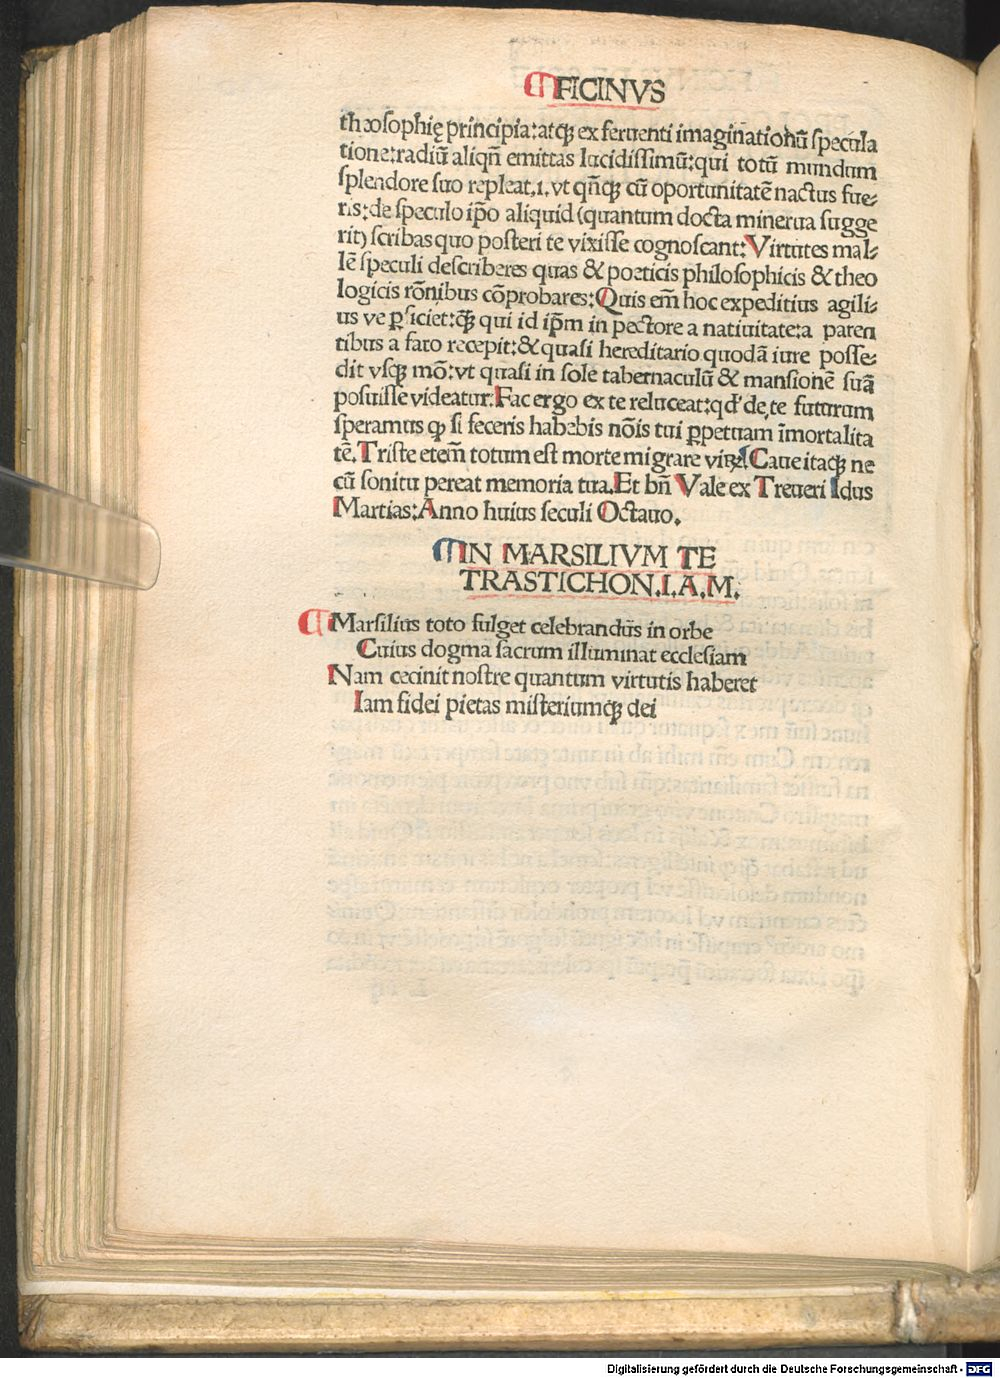 FICINVS
thæosophię principia:atqꝫ ex feruenti imaginationũ specula
tione:radiũ aliqñ emittas lucidissimũ:qui totũ mundum
splendore suo repleat.i.vt qñcqꝫ cũ oportunitatẽ nactus fue⸗
ris:de speculo ip̃o aliquid (quantum docta minerua sugge
rit) scribas quo posteri te vixisse cognoscant:Virtutes mal⸗
lẽ speculi describeres quas & poeticis philosophicis & theo
logicis rõnibus cõprobares:Quis em̃ hoc expeditius agili⸗
us ve ꝑficiet:qꝫ qui id ip̃m in pectore a natiuitate:a paren
tibus a fato recepit:& quasi hereditario quodã iure posse⸗
dit vsqꝫ mõ:vt quasi in sole tabernaculũ & mansionẽ suã
posuisse videatur:Fac ergo ex te reluceat:qd' de te futurum
speramus ꝙ si feceris habebis nõis tui ꝑpetuam ĩmortalita
tẽ.Triste etem̃ totum est morte migrare virũ.Caue itaqꝫ ne
cũ sonitu pereat memoria tua.Et bñ Vale ex Treueri Idus
Martias:Anno huius seculi Octauo.
IN MARSILIVM TE
TRASTICHON.I.A.M.
Marsilius toto fulget celebrandus in orbe
Cuius dogma sacrum illuminat ecclesiam
Nam cecinit nostre quantum virtutis haberet
Iam fidei pietas misteriumqꝫ dei
Digitalisierung gefördert durch die Deutsche Forschungsgemeinschaft - DFG